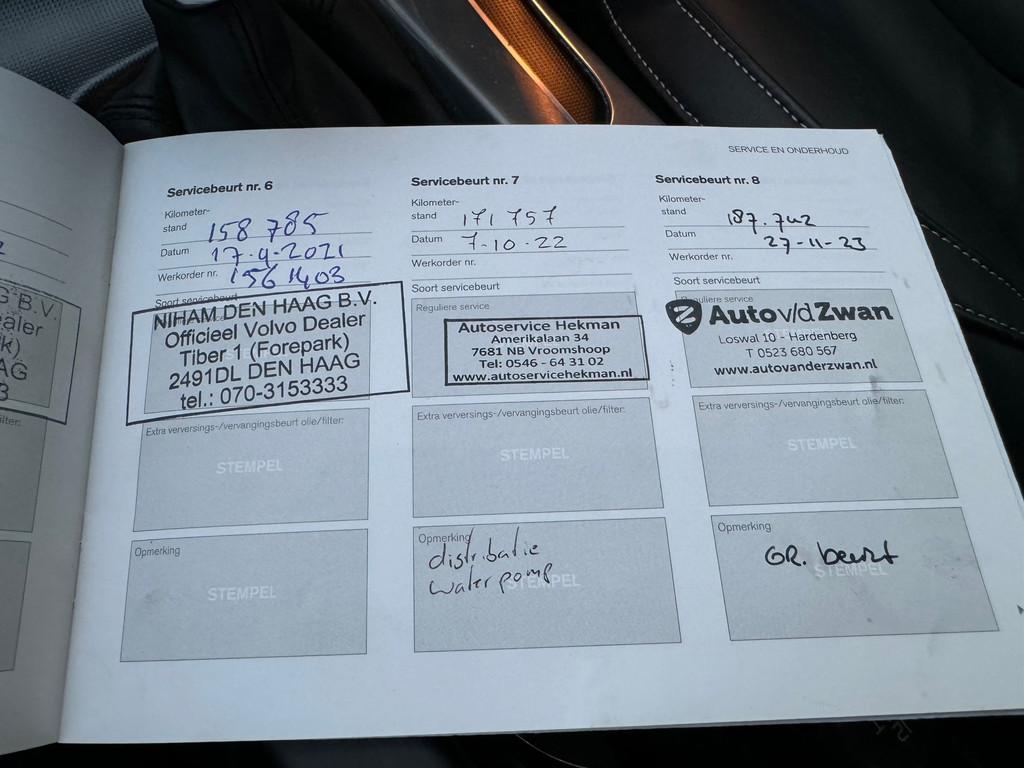 SERVICE EN ONDERHOUD
Servicebeurt nr. 6
Kilometer-
stand 158 785
Datum 17-9-2021
Werkorder nr. 1561403
Soort servicebeurt
NIHAM DEN HAAG B.V.
Officieel Volvo Dealer
Tiber 1 (Forepark)
2491DL DEN HAAG
tel.: 070-3153333
Extra verversings-/vervangingsbeurt olie/filter:
STEMPEL
Opmerking
STEMPEL
Servicebeurt nr. 7
Kilometer-
stand 171 757
Datum 7-10-22
Werkorder nr.
Soort servicebeurt
Reguliere service
Autoservice Hekman
Amerikalaan 34
7681 NB Vroomshoop
Tel: 0546 - 64 31 02
www.autoservicehekman.nl
Extra verversings-/vervangingsbeurt olie/filter:
STEMPEL
Opmerking
distributie
waterpomp
STEMPEL
Servicebeurt nr. 8
Kilometer-
stand 187.742
Datum 27-11-23
Werkorder nr.
Soort servicebeurt
Reguliere service
Auto v/d Zwan
Loswal 10 - Hardenberg
T 0523 680 567
www.autovanderzwan.nl
Extra verversings-/vervangingsbeurt olie/filter:
STEMPEL
Opmerking
GR. beurt
STEMPEL